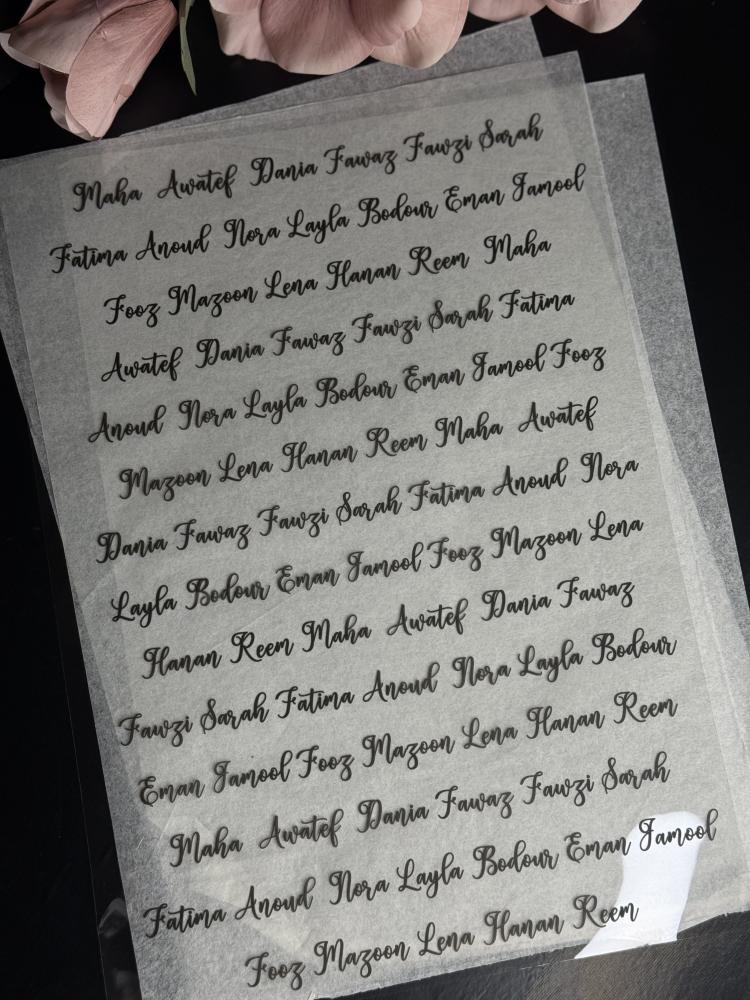 Maha Awatef Dania Fawaz Fawzi Sarah
Fatima Anoud Nora Layla Bodour Eman Jamool
Fooz Mazoon Lena Hanan Reem Maha
Awatef Dania Fawaz Fawzi Sarah Fatima
Anoud Nora Layla Bodour Eman Jamool Fooz
Mazoon Lena Hanan Reem Maha Awatef
Dania Fawaz Fawzi Sarah Fatima Anoud Nora
Layla Bodour Eman Jamool Fooz Mazoon Lena
Hanan Reem Maha Awatef Dania Fawaz
Fawzi Sarah Fatima Anoud Nora Layla Bodour
Eman Jamool Fooz Mazoon Lena Hanan Reem
Maha Awatef Dania Fawaz Fawzi Sarah
Fatima Anoud Nora Layla Bodour Eman Jamool
Fooz Mazoon Lena Hanan Reem